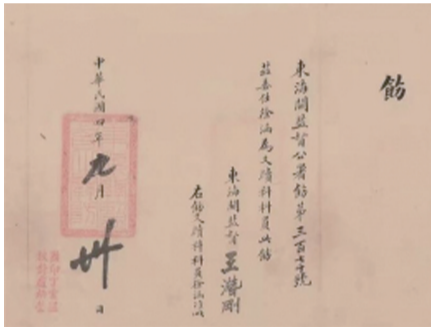 飭
東海關監督公署飭第三百七十號
茲委任徐涵為文牘科科員此飭
東海關監督王潛剛
右飭文牘科科員徐涵准此
中華民國四年九月卅日